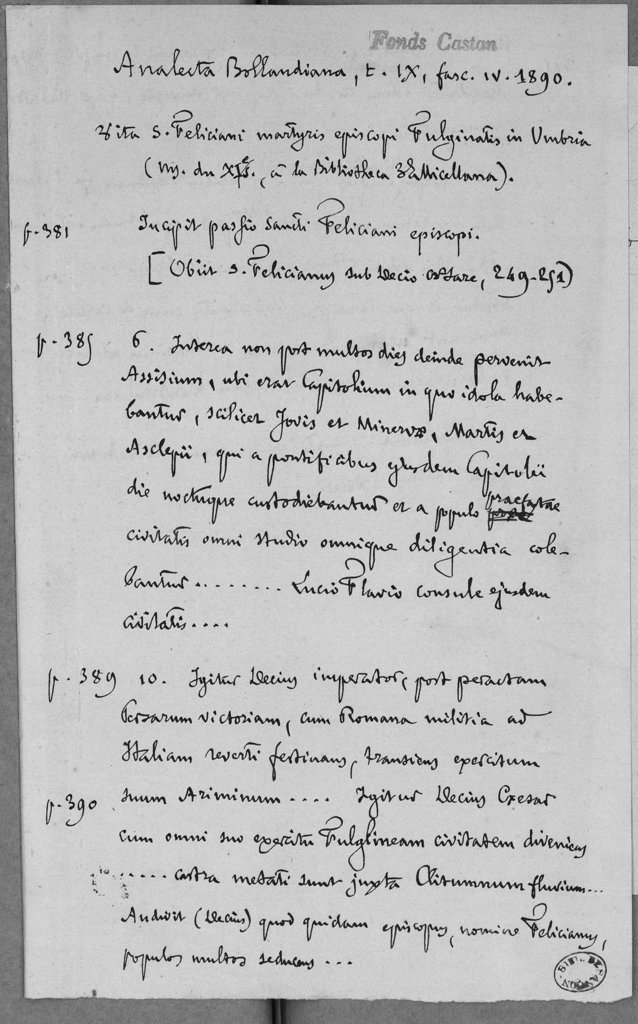 Fonds Castan
Analecta Bollandiana, t. IX, fasc. IV. 1890.
Vita S. Feliciani martyris episcopi Fulginatis in Umbria
(ms. du XIe s., à la Bibliotheca Vallicellana).
p. 381 Incipit passio sancti Feliciani episcopi.
[Obiit S. Felicianus sub Decio Cesare, 249-251)
p. 385 6. Interea non post multos dies deinde pervenit
Assisium, ubi erat Capitolium in quo idola habe-
bantur, scilicet Jovis et Minervæ, Martis et
Asclepii, qui a pontificibus ejusdem Capitolii
die noctuque custodiebantur et a populo praefatae
civitatis omni studio omnique diligentia cole-
bantur........ Lucio Flavio consule ejusdem
civitatis....
p. 389 10. Igitur Decius imperator, post peractam
Persarum victoriam, cum Romana militia ad
Italiam reverti festinans, transiens exercitum
p. 390 suum Ariminum.... Igitur Decius Cæsar
cum omni suo exercitu Fulgineam civitatem diveniens
..... castra metati sunt juxta Clitumnum fluvium...
Audivit (Decius) quod quidam episcopus, nomine Felicianus,
populos multos seducens...
BIBL. BESANÇON